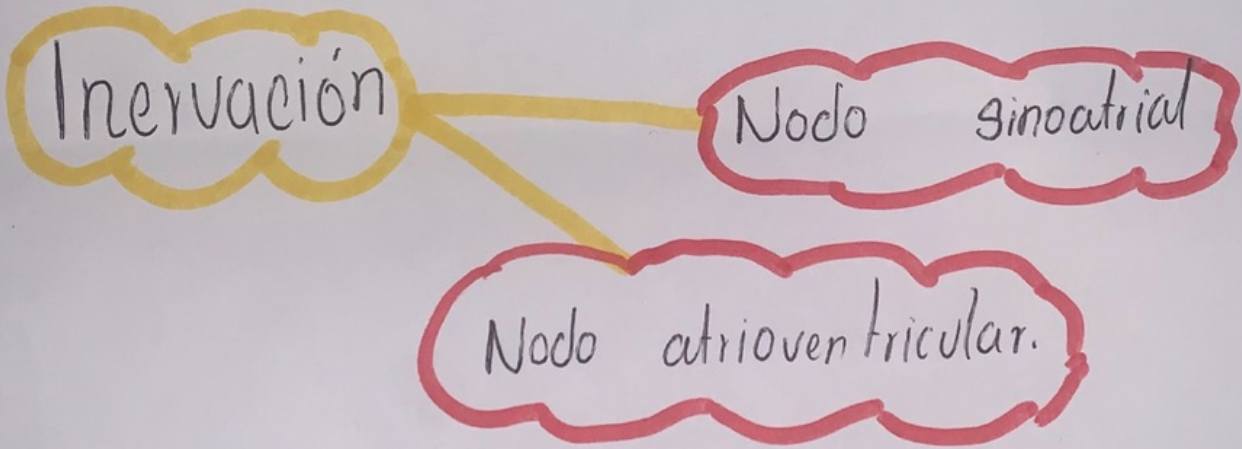 Inervación
Nodo sinoatrial
Nodo atrioventricular.